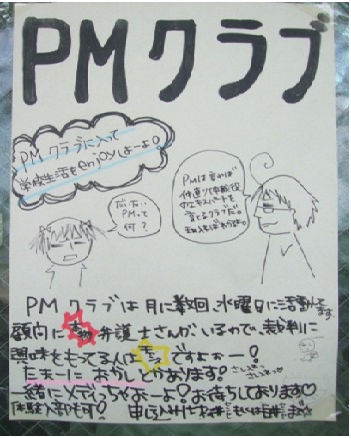 PMクラブ
PMクラブに入って
学校生活をenjoyしよーよ!
だいたい
PMって
何?
PMは言わば
仲直りの仲介役
のエキスパートを
育てるクラブだ。
PMクラブは月に数回、水曜日に活動してます
顧問に本物弁護士さんがいるので、裁判に
興味をもってる人は ですよぉー!
たまーにおかしとかあります。
一緒にハマっちゃおーよ!お待ちしております♡
体験入部も可!